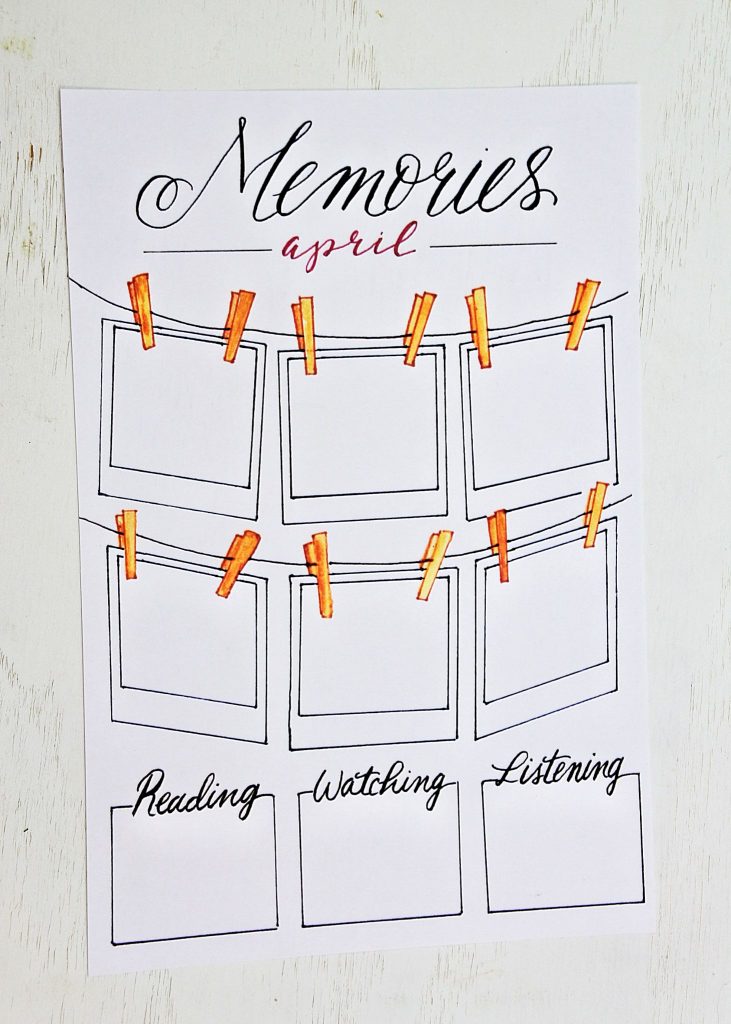 Memories
april
Reading Watching Listening